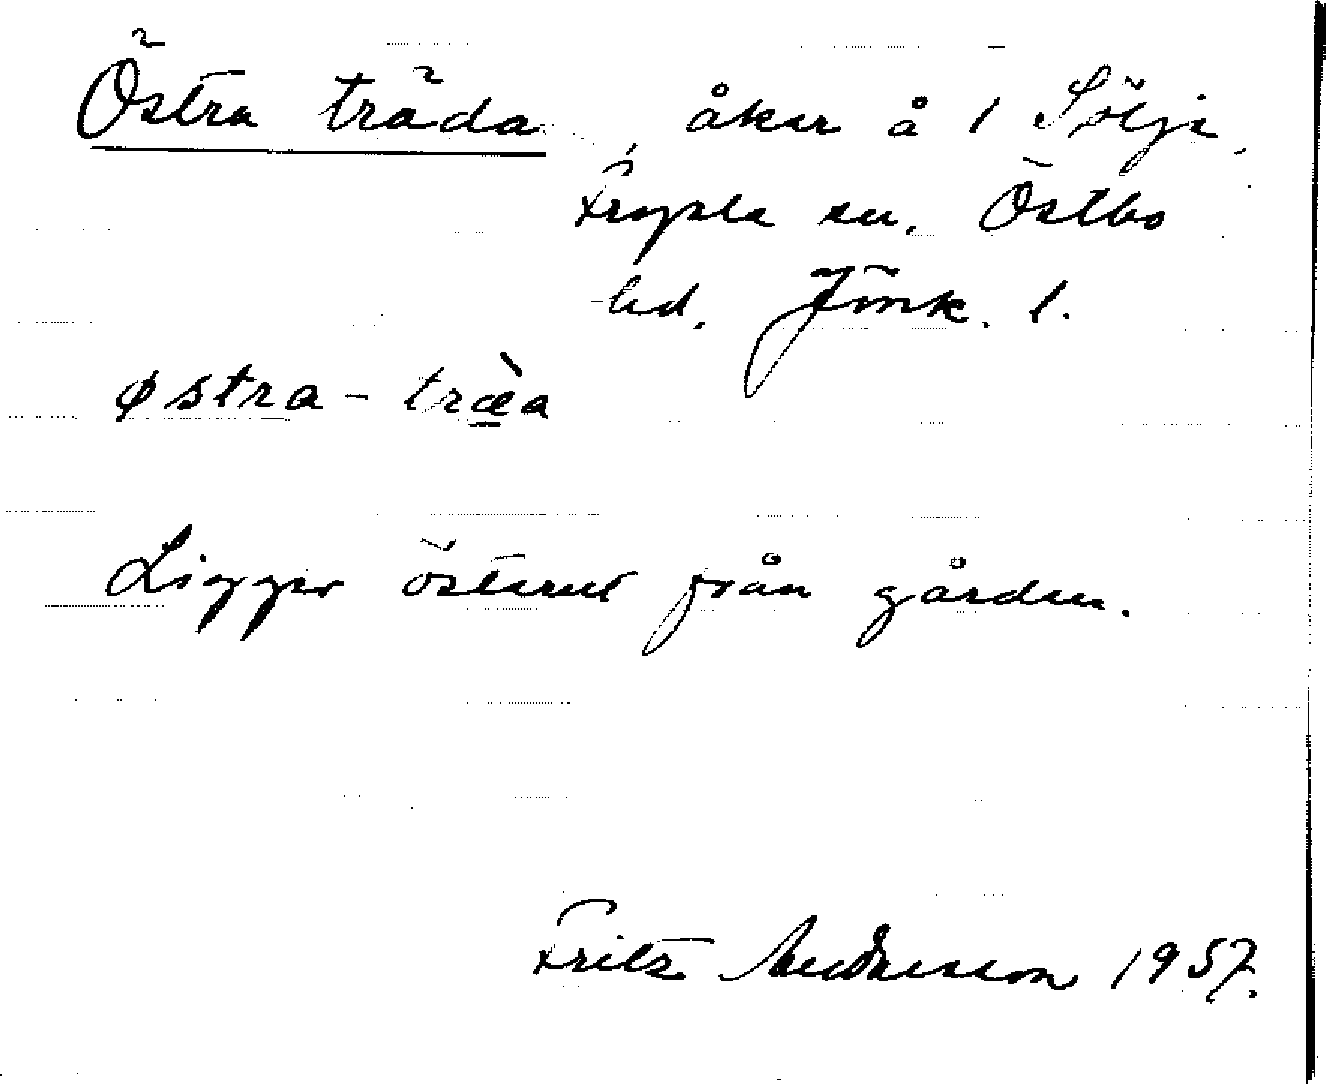 Östra träda, åker å 1 Sölje,
Fryele sn. Östbo
hd. Jönk. l.
østra - træ̀a
Ligger österut från gården.
Fritz Andersson 1957.